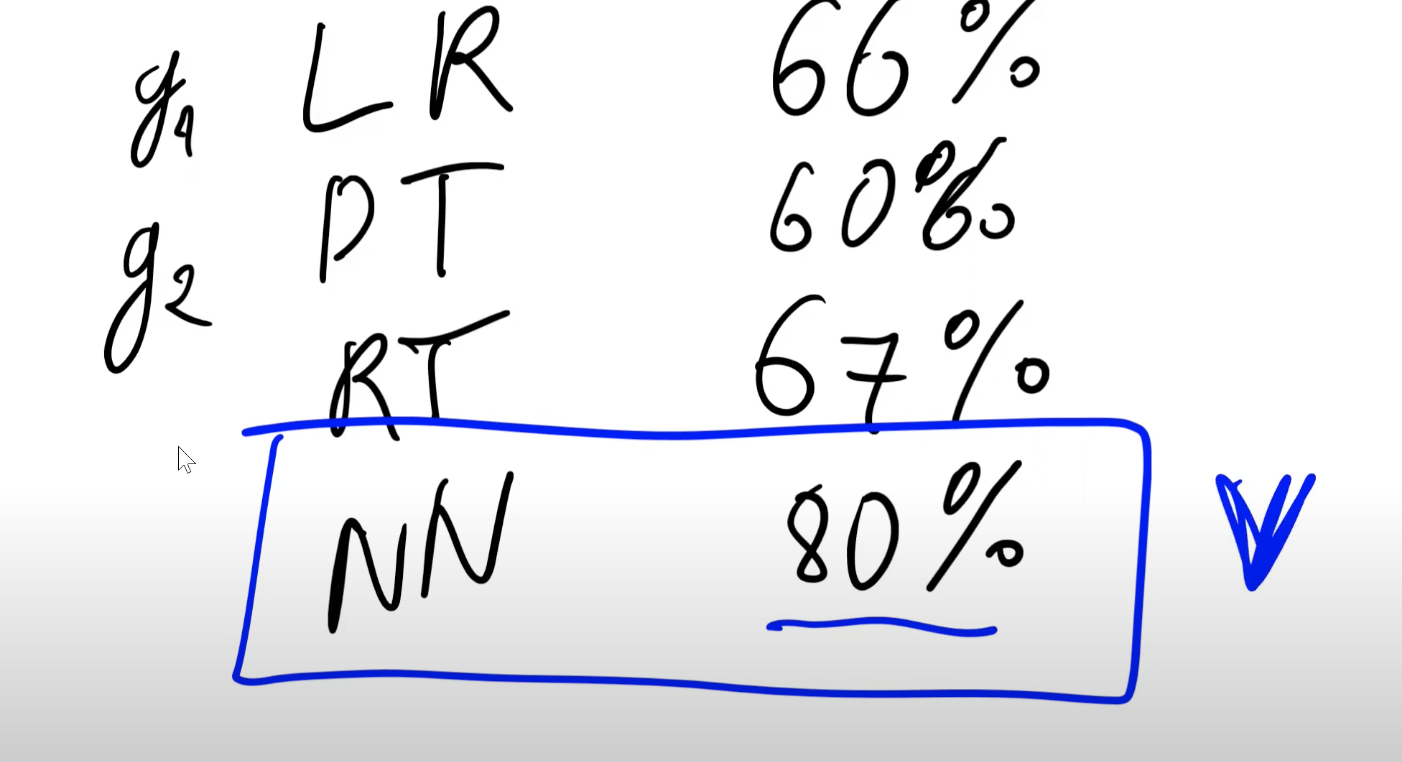 g1 LR 66%
g2 DT 60%
RT 67%
NN 80%